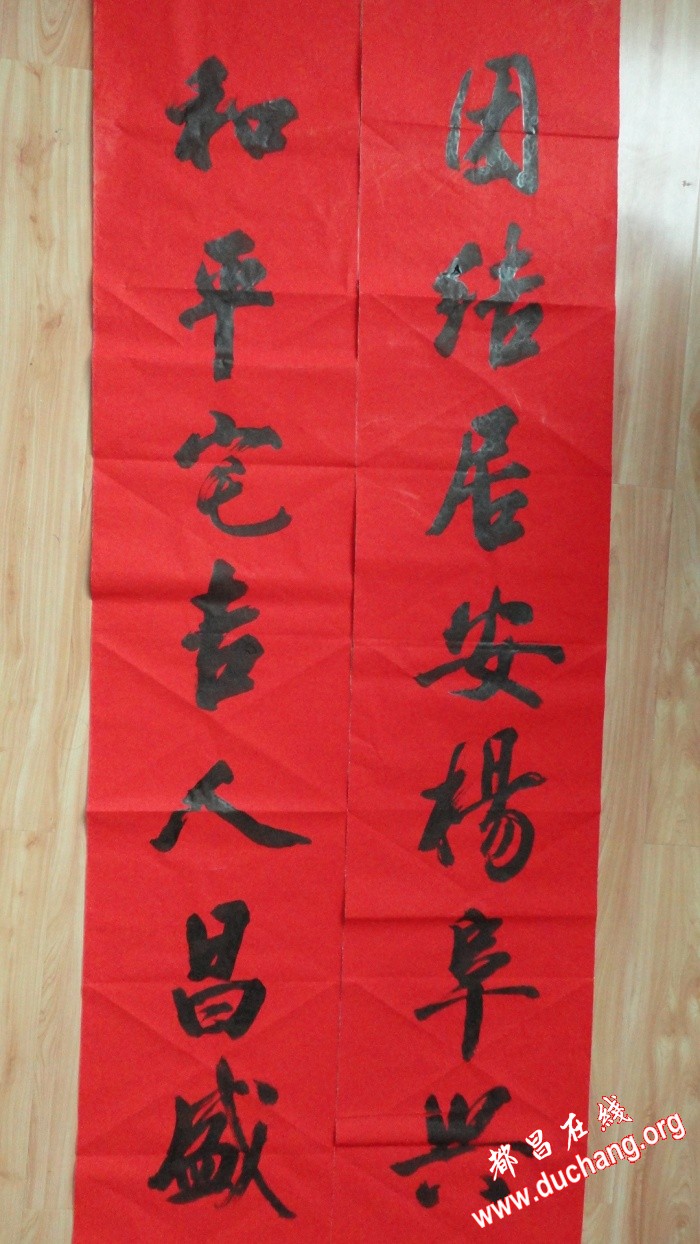 团结居安杨阜兴
和平宅吉人昌盛
都昌在线
www.duchang.org